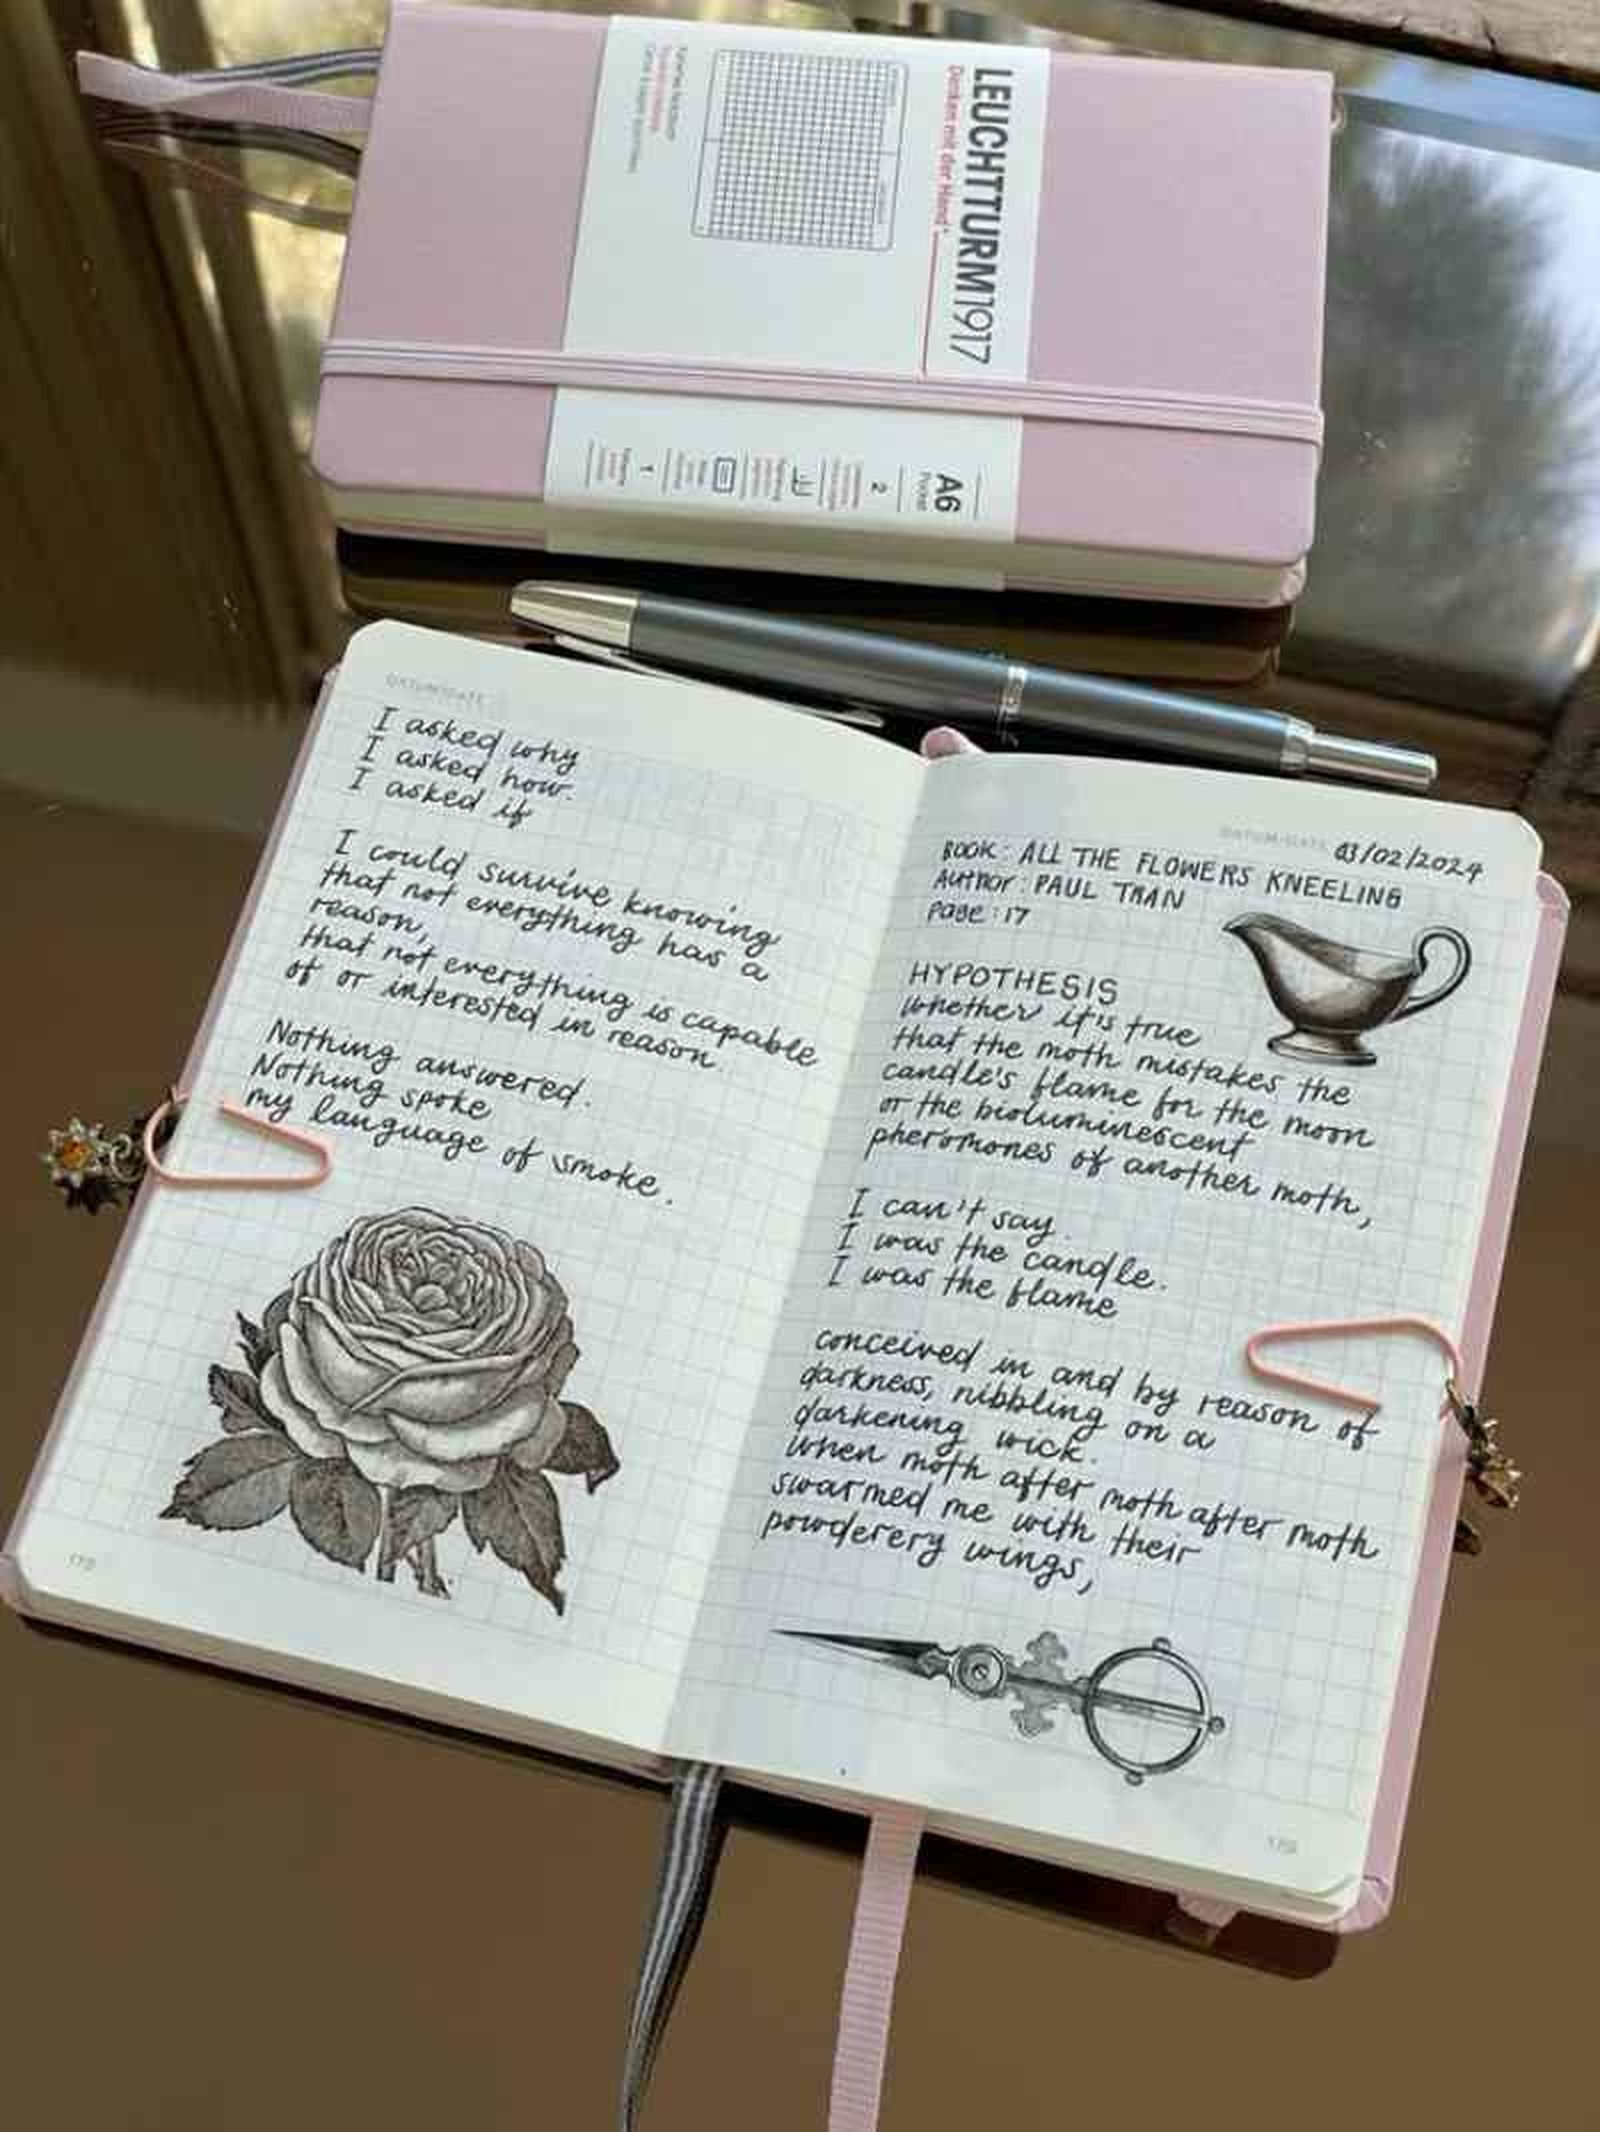 LEUCHTTURM1917
Denken mit der Hand
A6
Pocket
2
1
DATUM/DATE
I asked why
I asked how.
I asked if
I could survive knowing
that not everything has a
reason,
that not everything is capable
of or interested in reason.
Nothing answered.
Nothing spoke
my language of smoke.
DATUM/DATE 03/02/2024
BOOK: ALL THE FLOWERS KNEELING
Author: PAUL TRAN
Page: 17
HYPOTHESIS
whether it's true
that the moth mistakes the
candle's flame for the moon
or the bioluminescent
pheromones of another moth,
I can't say.
I was the candle.
I was the flame
conceived in and by reason of
darkness, nibbling on a
darkening wick.
when moth after moth after moth
swarmed me with their
powderery wings,